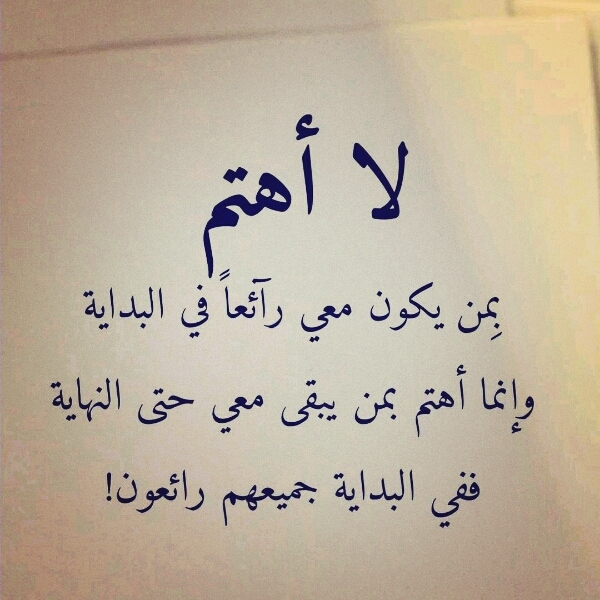 لا أهتم
بِمن يكون معي رآئعاً في البداية
وإنما أهتم بمن يبقى معي حتى النهاية
ففي البداية جميعهم رائعون!